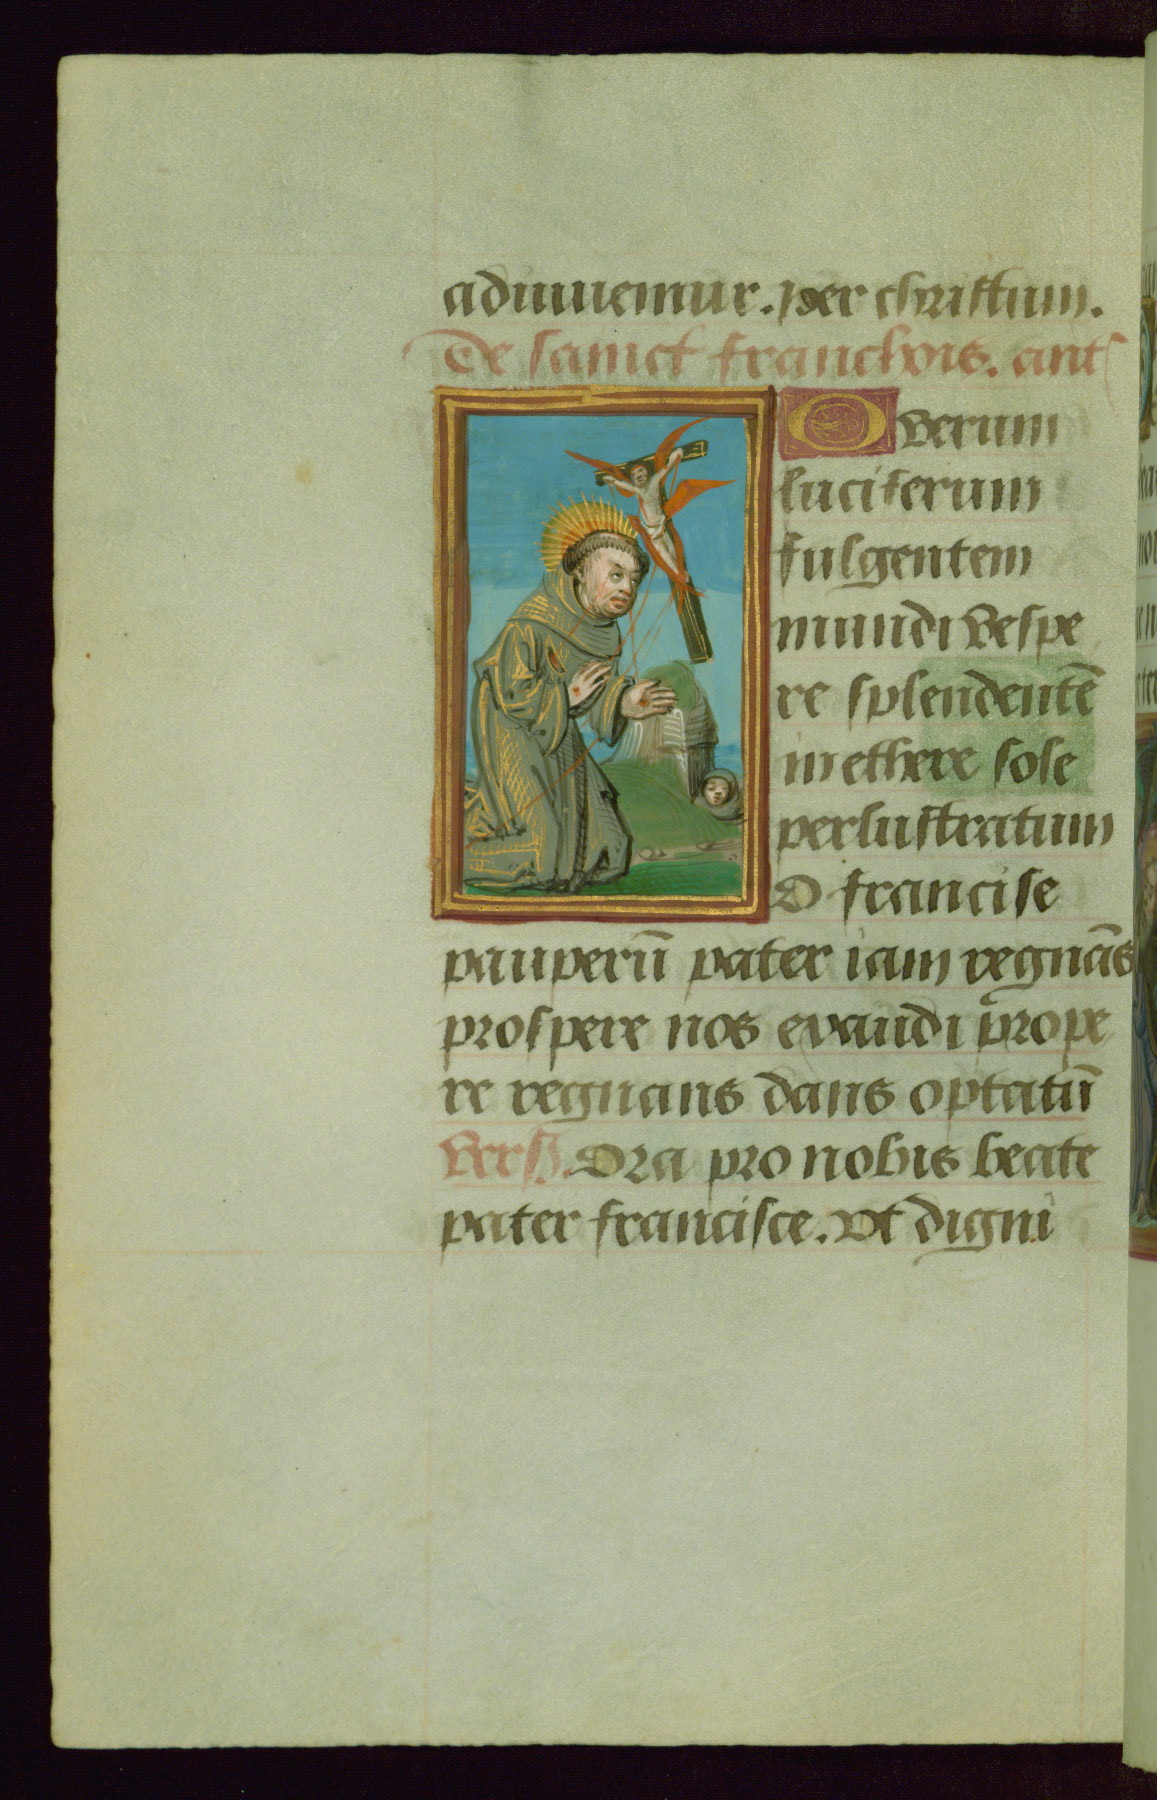 adiuuemur. per christum.
De sainct franchois. ant
O verum
luciferum
fulgentem
mundi vespe
re splendentē
in ethere sole
perlustratum
O francise
pauperū pater iam regnās
prospere nos evaudi prope
re regnans dans optatū
Vers. Ora pro nobis beate
pater francisce. Vt digni